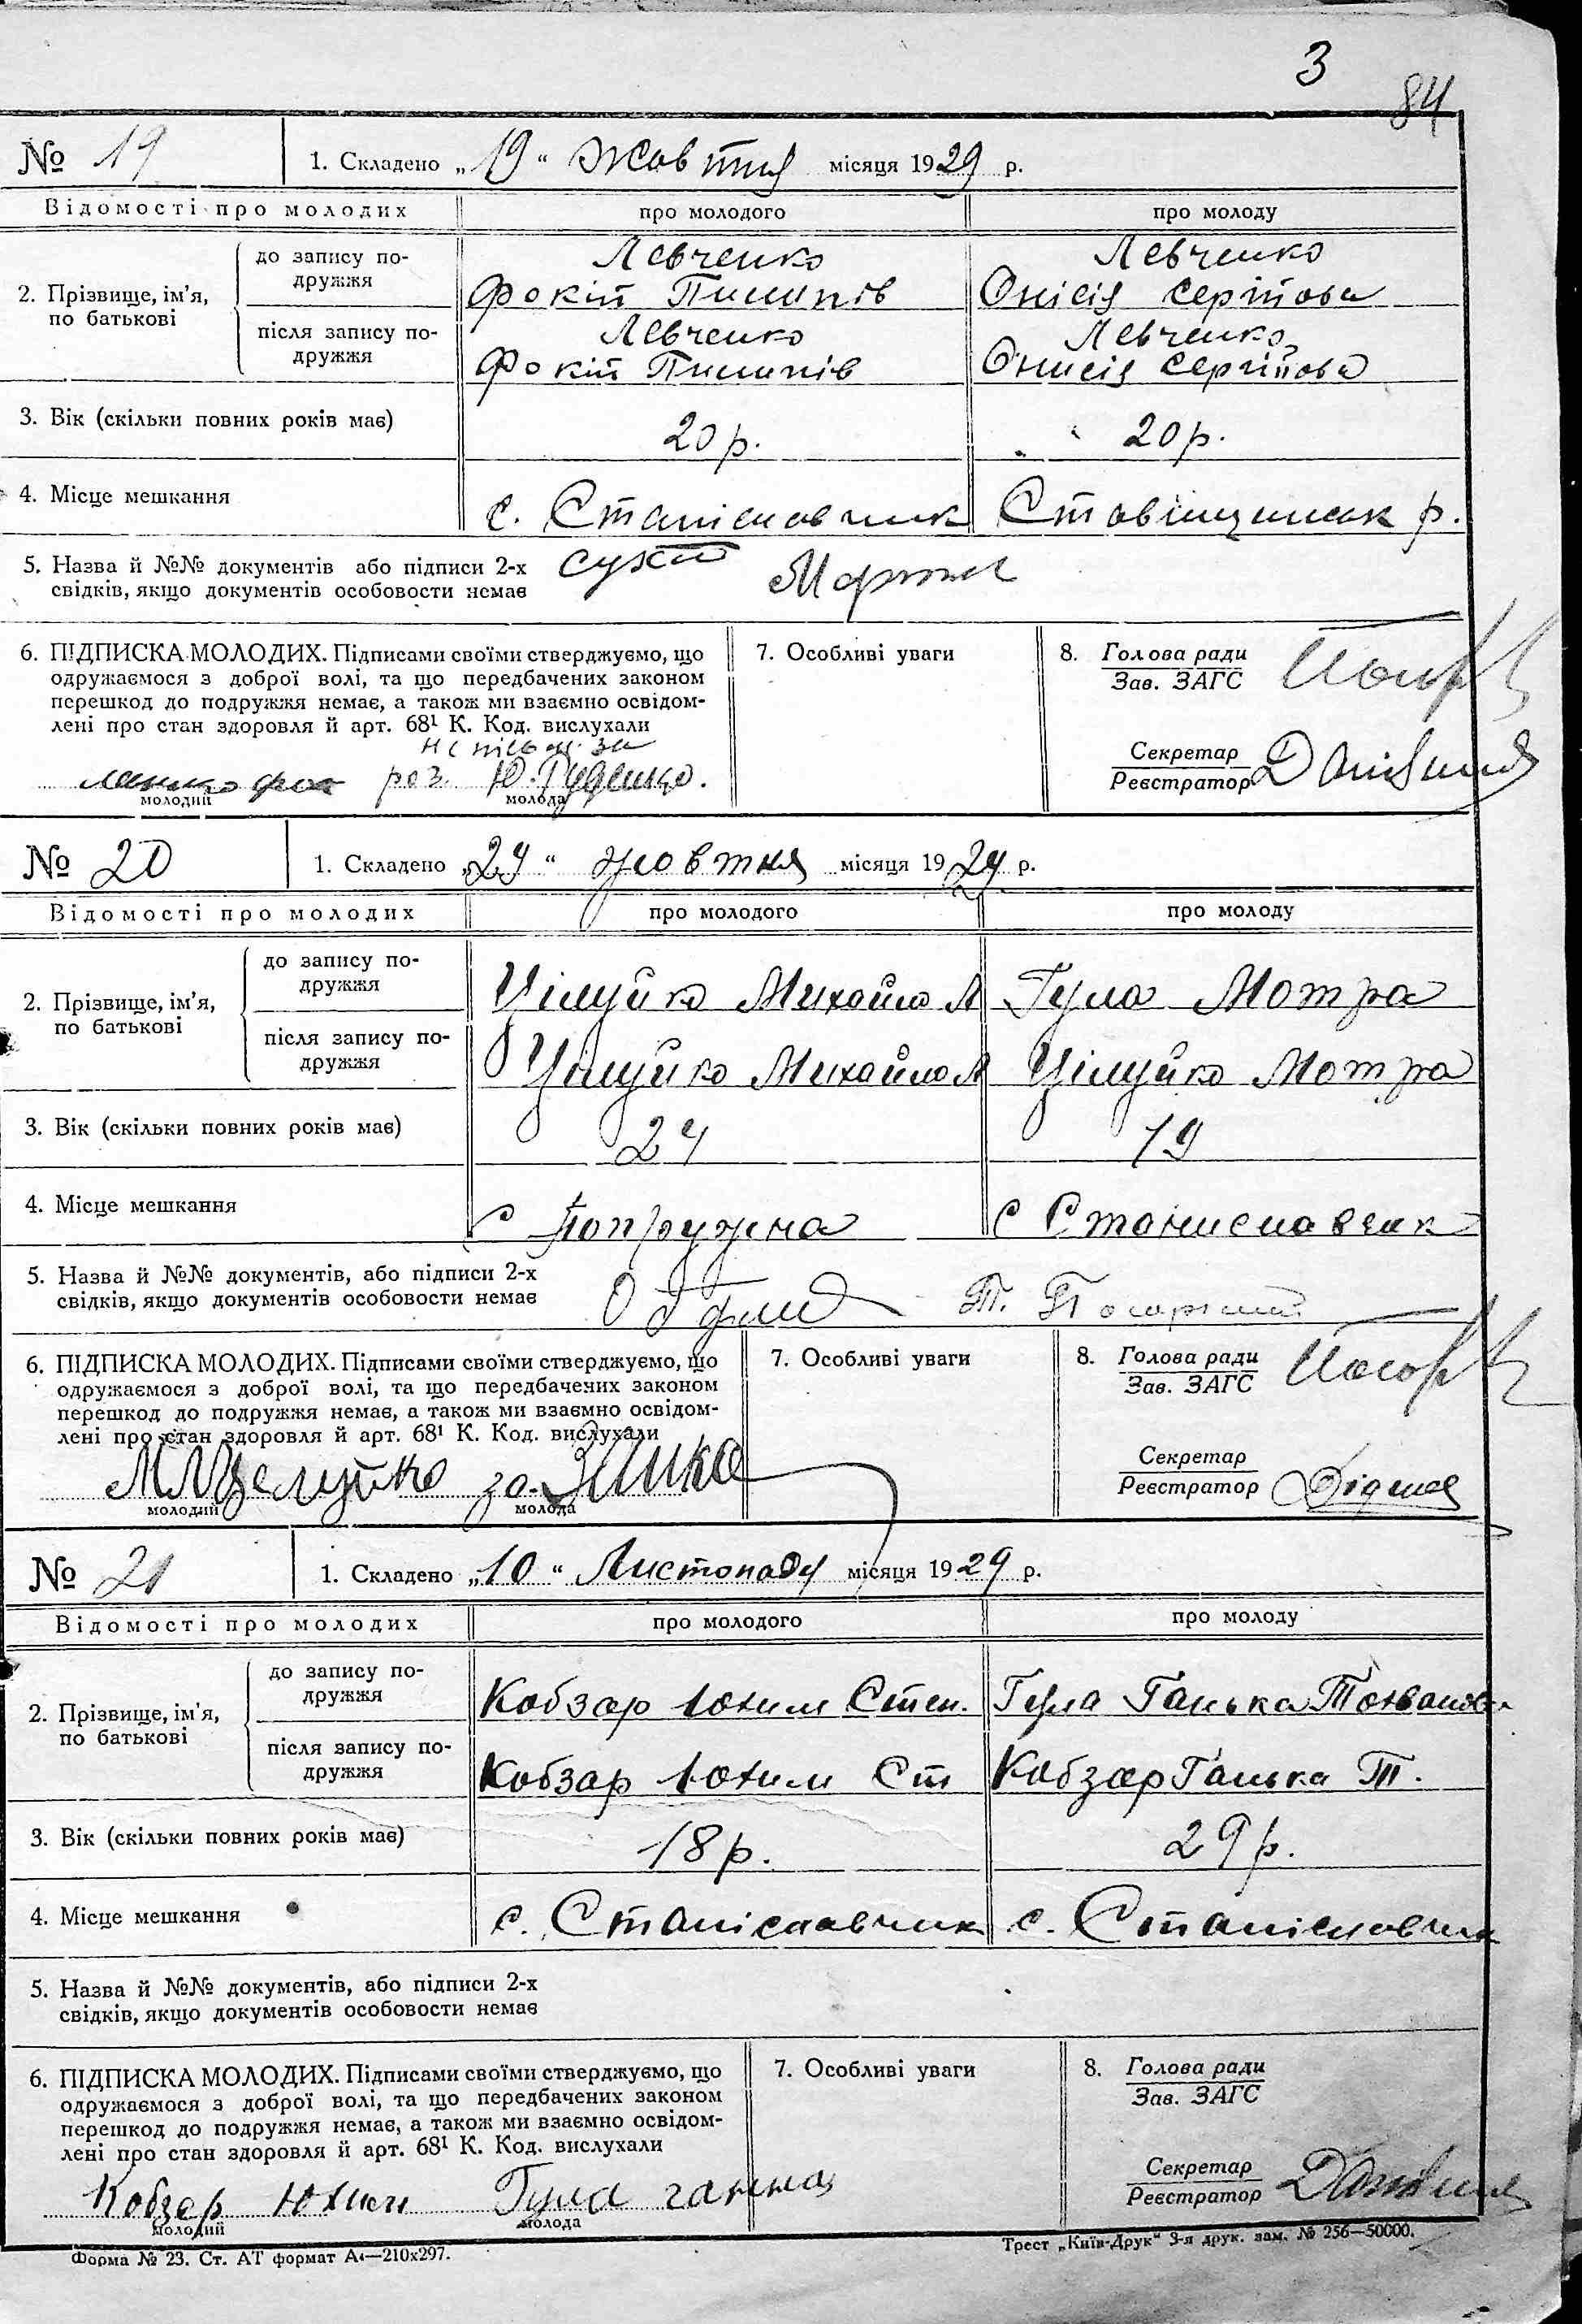 3
84
№ 19
1. Складено „19“ Жовтня місяця 1929 р.
Відомості про молодих
про молодого
про молоду
2. Прізвище, ім’я, по батькові
до запису подружжя
Левченко
Фокій Пилипів
Левченко
Онісія Сергійова
після запису подружжя
Левченко
Фокій Пилипів
Левченко
Онисія Сергійова
3. Вік (скільки повних років має)
20 р.
20 р.
4. Місце мешкання
с. Станіславчик
Ставіщинськ р.
5. Назва й №№ документів або підписи 2-х
свідків, якщо документів особовости немає
6. ПІДПИСКА МОЛОДИХ. Підписами своїми стверджуємо, що
одружаємося з доброї волі, та що передбачених законом
перешкод до подружжя немає, а також ми взаємно освідом-
лені про стан здоровля й арт. 68¹ К. Код. вислухали
роз.
молодий
молода
7. Особливі уваги
8. Голова ради
Зав. ЗАГС
Секретар
Реєстратор
№ 20
1. Складено „29“ жовтня місяця 1929 р.
Відомості про молодих
про молодого
про молоду
2. Прізвище, ім’я, по батькові
до запису подружжя
Цілуйко Михайло Л
Гула Мотра
після запису подружжя
Цілуйко Михайло Л
Цілуйко Мотра
3. Вік (скільки повних років має)
24
19
4. Місце мешкання
с Попружна
с Станиславчик
5. Назва й №№ документів, або підписи 2-х
свідків, якщо документів особовости немає
6. ПІДПИСКА МОЛОДИХ. Підписами своїми стверджуємо, що
одружаємося з доброї волі, та що передбачених законом
перешкод до подружжя немає, а також ми взаємно освідом-
лені про стан здоровля й арт. 68¹ К. Код. вислухали
молодий
молода
7. Особливі уваги
8. Голова ради
Зав. ЗАГС
Секретар
Реєстратор
№ 21
1. Складено „10“ Листопаду місяця 1929 р.
Відомості про молодих
про молодого
про молоду
2. Прізвище, ім’я, по батькові
до запису подружжя
Кобзар Юхим Степ.
Гула Ганька
після запису подружжя
Кобзар Юхим Ст
Кобзар Ганька Т.
3. Вік (скільки повних років має)
18 р.
29 р.
4. Місце мешкання
с. Станіславчик
с. Станіславчик
5. Назва й №№ документів, або підписи 2-х
свідків, якщо документів особовости немає
6. ПІДПИСКА МОЛОДИХ. Підписами своїми стверджуємо, що
одружаємося з доброї волі, та що передбачених законом
перешкод до подружжя немає, а також ми взаємно освідом-
лені про стан здоровля й арт. 68¹ К. Код. вислухали
Кобзер Юхим Гула ганна
молодий
молода
7. Особливі уваги
8. Голова ради
Зав. ЗАГС
Секретар
Реєстратор
Форма № 23. Ст. АТ формат А4—210х297.
Трест „Київ-Друк“ 3-я друк. зам. № 256—50000.